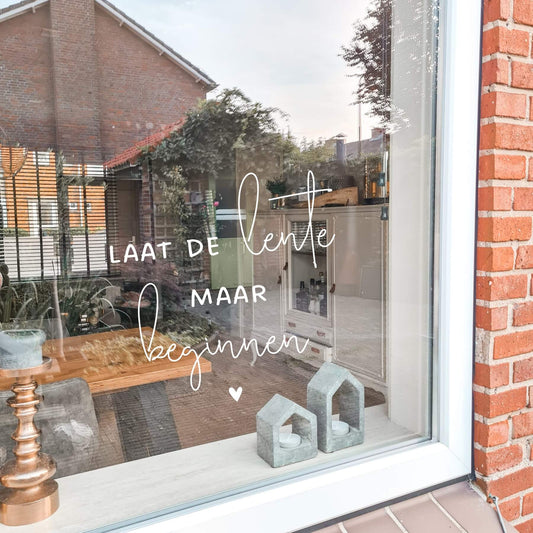 LAAT DE lente
MAAR
beginnen